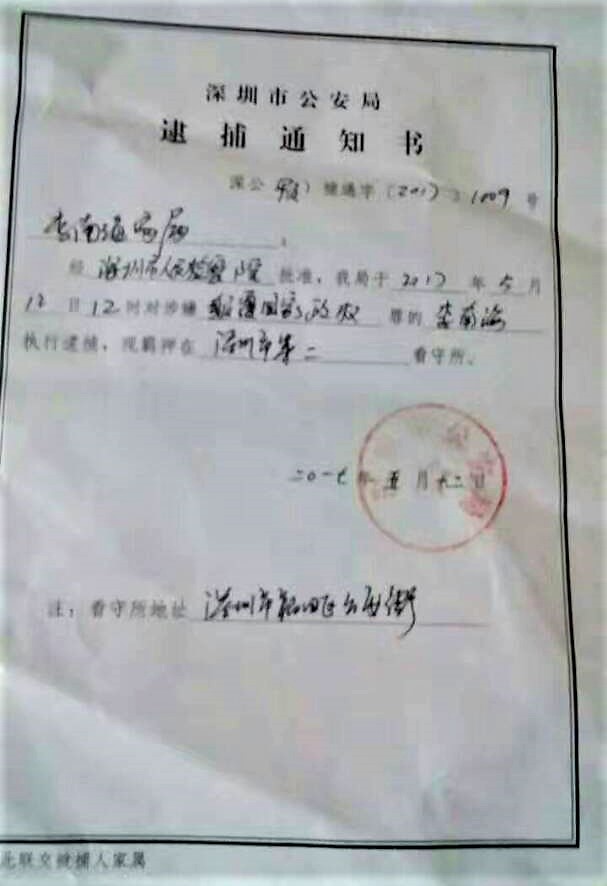 深圳市公安局
逮捕通知书
深公（预）捕通字〔2017〕31009号
李南海家属：
经 深圳市人民检察院 批准，我局于 2017 年 5 月
12 日 12 时对涉嫌 颠覆国家政权 罪的 李南海
执行逮捕，现羁押在 深圳市第二 看守所。
二〇一七年五月十二日
注：看守所地址 深圳市 街
此联交被捕人家属